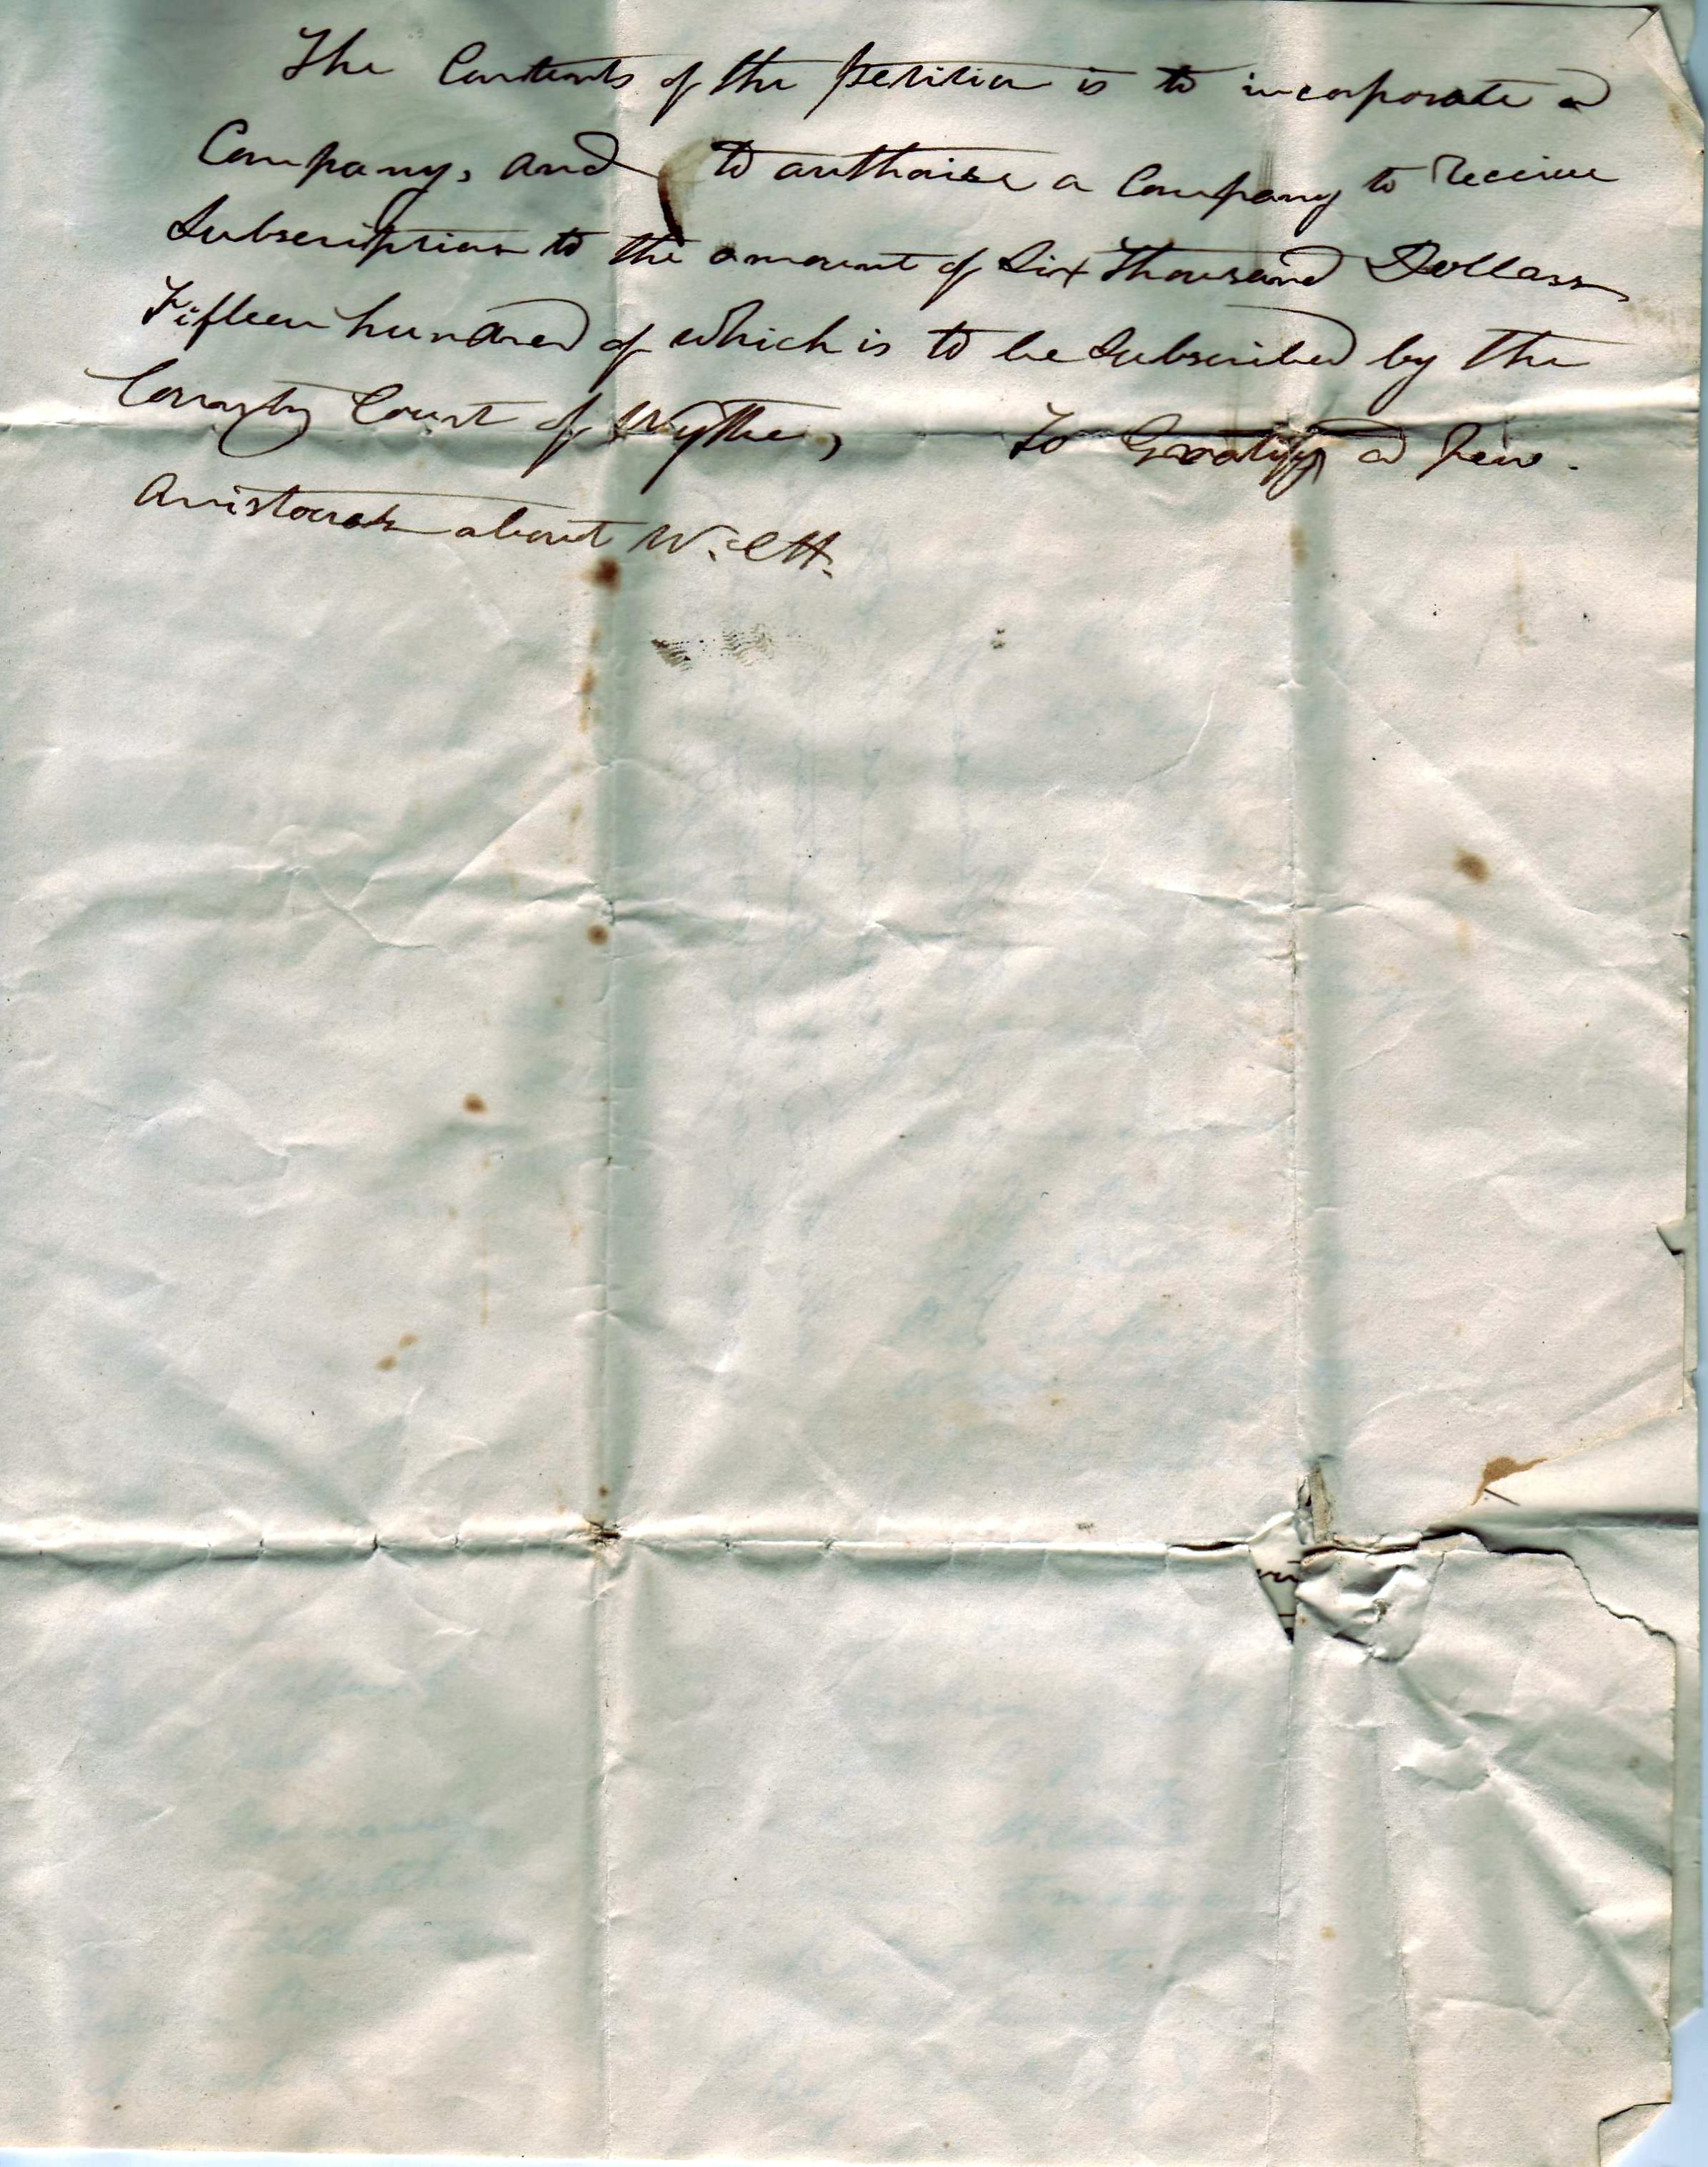 The Contents of the petition is to incorporate a
Company, and to authorise a Company to receive
Subscription to the amount of Six Thousand Dollars
Fifteen hundred of which is to be Subscribed by the
County Court of Wythe, To Gratify a few.
Aristocrats about W. CH.